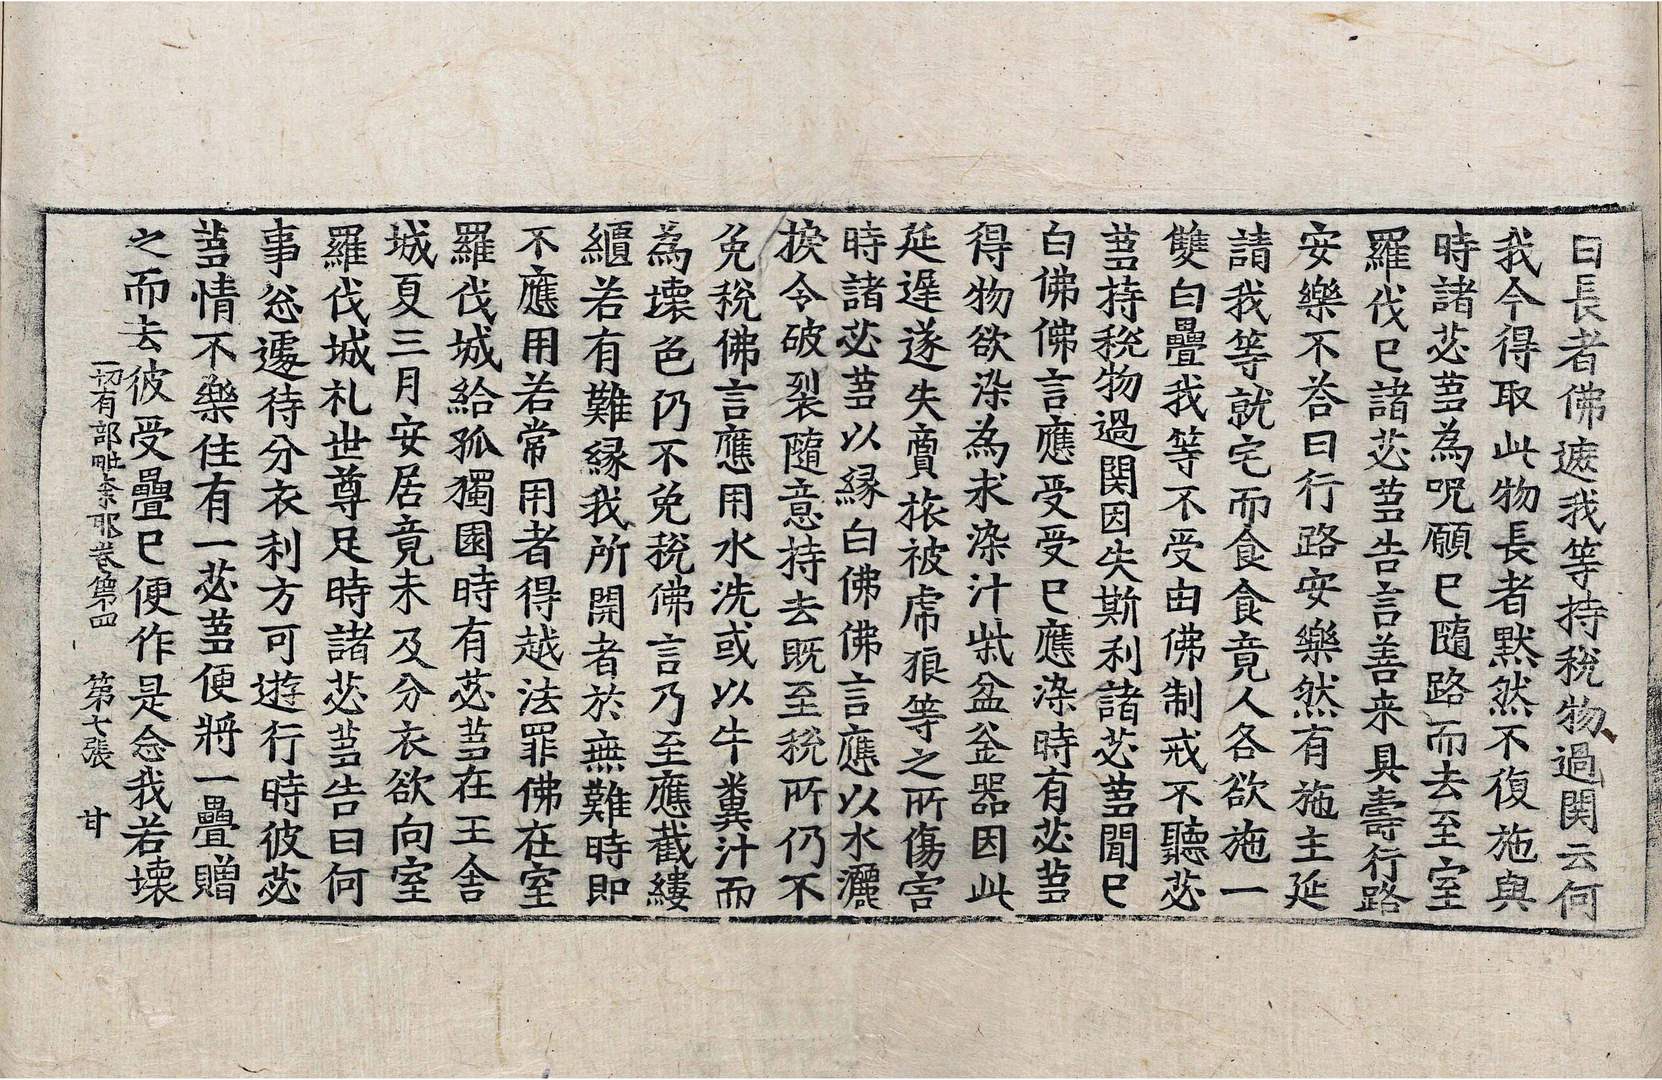 曰長者佛遮我等持稅物過関云何
我今得取此物長者默然不復施與
時諸苾芻為呪願已隨路而去至室
羅伐已諸苾芻告言善来具壽行路
安樂不荅曰行路安樂然有施主延
請我等就宅而食食竟人各欲施一
雙白疊我等不受由佛制戒不聽苾
芻持稅物過関因失斯利諸苾芻聞已
白佛佛言應受受已應染時有苾芻
得物欲染為求染汁柴盆釜器因此
延遲遂失賣旅被虎狼等之所傷害
時諸苾芻以縁白佛佛言應以水灑
捩令破裂隨意持去既至稅所仍不
免稅佛言應用水洗或以牛糞汁而
為壊色仍不免稅佛言乃至應截縷
繣若有難縁我所開者於無難時即
不應用若常用者得越法罪佛在室
羅伐城給孤獨園時有苾芻在王舍
城夏三月安居竟未及分衣欲向室
羅伐城礼世尊足時諸苾芻告曰何
事忩遽待分衣利方可遊行時彼苾
芻情不樂住有一苾芻便將一疊贈
之而去彼受疊已便作是念我若壊
一切有部毗柰耶卷第四 第七張 甘